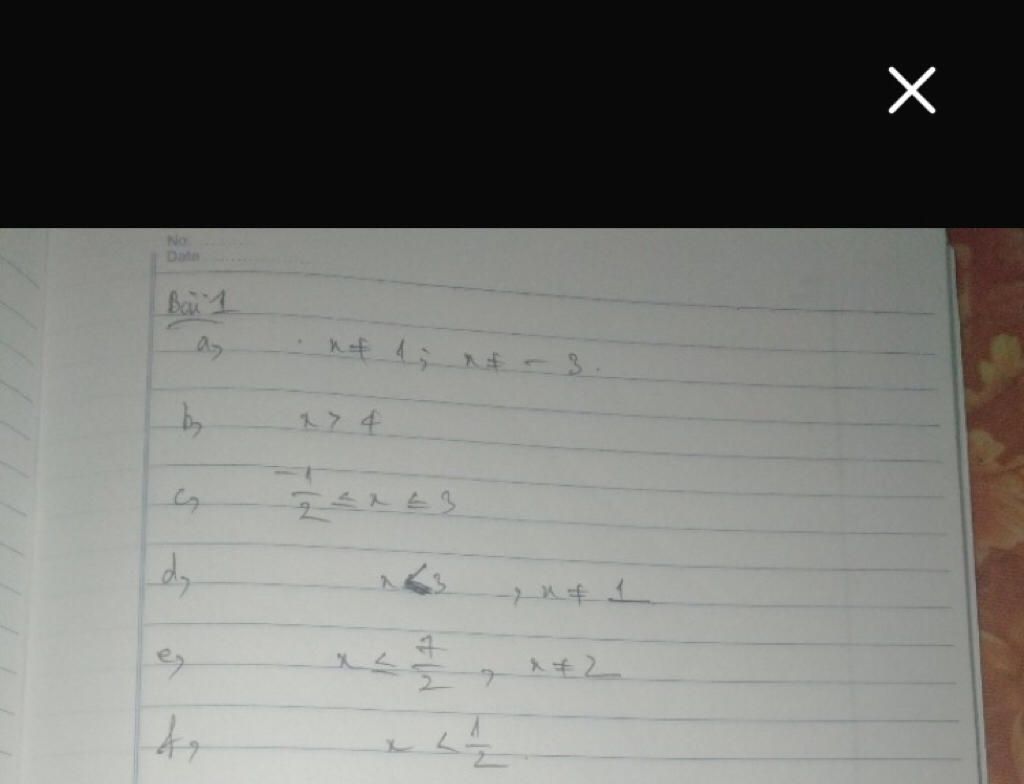 No. ............
Date ......................
Bài 1
a, x ≠ 1; x ≠ - 3.
b, x > 4
c, -1/2 ≤ x ≤ 3
d, x < 3 , x ≠ 1
e, x ≤ 7/2 , x ≠ 2
f, x < 1/2.